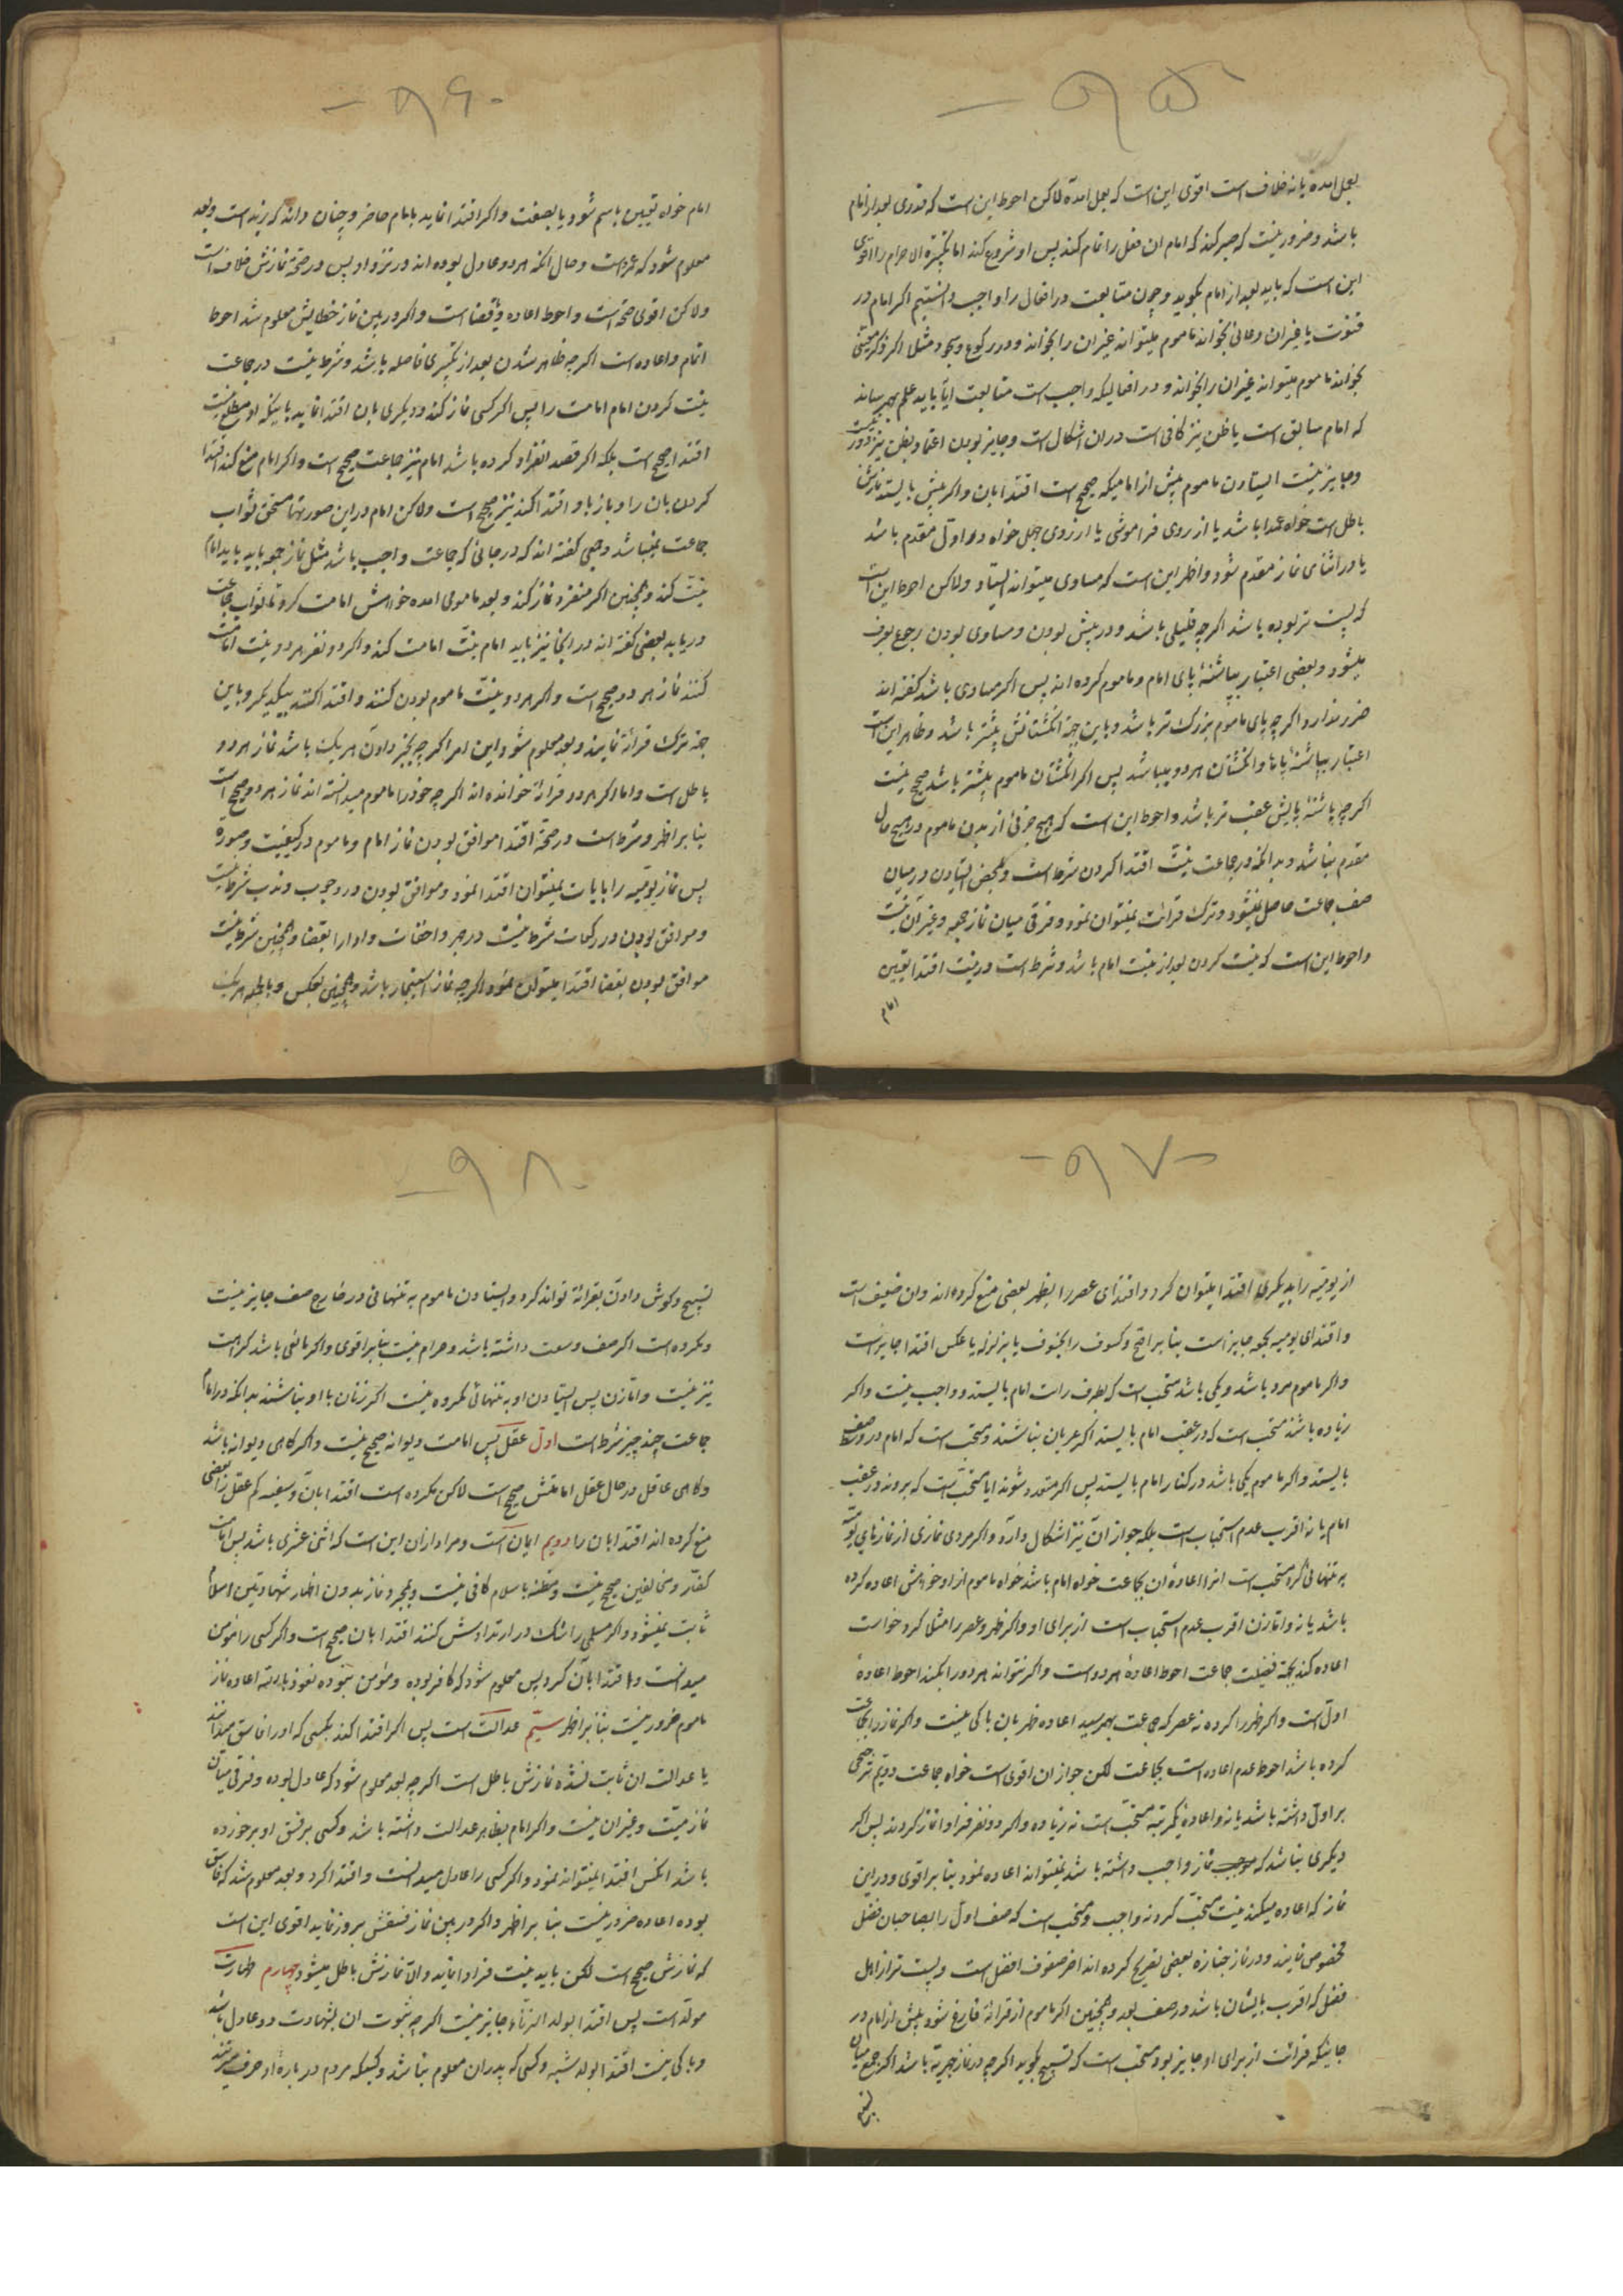 - ۹۵
بعمل امده یا نه خلاف است اقوی این است که بعمل امده لاکن احوط این است که قدری بعد از امام
باشد و ضرور نیست که صبر کند که امام ان فعل را تمام کند پس او شروع کند اما تکبیرة الاحرام را اقوی
این است که باید بعد از امام بگوید و چون متابعت در افعال را واجب دانستیم اکر امام در
قنوت یا غیران دعائی بخواند ماموم میتواند غیران را بخواند و در رکوع و سجود مثلا اکر ذکر معینی
بخواند ماموم میتواند غیران را بخواند و در افعالیکه واجب است متابعت ایا باید علم بهم رساند
که امام سابق است یا ظن نیز کافی است دران اشکال است و جایز بودن اعتماد بظن نیز دور نیست
و جایز نیست ایستادن ماموم پیش از امامیکه صحیح است اقتدا بان و اکر پیش بایستد نمازش
باطل است خواه عمدا باشد یا از روی فراموشی یا از روی جهل خواه در اول مقدم باشد
یا در اثنای نماز مقدم شود و اظهر این است که مساوی میتواند ایستاد ولاکن احوط این است
که پست تر بوده باشد اکرچه قلیلی باشد و در پیش بودن و مساوی بودن رجوع بعرف
میشود و بعضی اعتبار بپاشنهٔ پای امام و ماموم کرده اند پس اکر مساوی باشد کفته اند
ضرر ندارد اکرچه پای ماموم بزرک تر باشد و باین جهة انکشتانش پیشتر باشد و ظاهر این است
اعتبار بپاشنهٔ پاها و انکشتان هردو میباشد پس اکر انکشتان ماموم پیشتر باشد صحیح نیست
اکرچه پاشنهٔ پایش عقب تر باشد و احوط این است که هیچ جزئی از بدن ماموم در هیچ حال
مقدم نباشد و بدانکه در جماعت نیت اقتدا کردن شرط است و بمحض ایستادن در میان
صف جماعت حاصل نمیشود و ترک قرائت نمیتوان نمود و فرقی میان نماز جمعه و غیران نیست
و احوط این است که نیت کردن بعد از نیت امام باشد و شرط است در نیت اقتدا تعیین
امام
- ۹۶ -
امام خواه تعیین باسم شود یا بصفت و اکر اقتدا نماید بامام حاضر و چنان داند که زید است و بعد
معلوم شود که عمرو است و حال انکه هردو عادل بوده اند در نزد او پس در صحة نمازش خلاف است
ولاکن اقوی صحة است و احوط اعاده و قضا است و اکر در بین نماز خطایش معلوم شد احوط
اتمام و اعاده است اکرچه ظاهر شدن بعد از تکبیر بی فاصله باشد و شرط نیست در جماعت
نیت کردن امام امامت را پس اکر کسی نماز کند و دیکری بان اقتدا نماید با اینکه او مطلع نیست
اقتدا صحیح است بلکه اکر قصد انفراد کرده باشد امام نیز جماعت صحیح است و اکر امام منع کند اقتدا
کردن بان را و باز باو اقتدا کند نیز صحیح است ولاکن امام در این صورتها مستحق ثواب
جماعت نمیباشد و جمعی کفته اند که در جائی که جماعت واجب باشد مثل نماز جمعه باید امام
نیت کند و همچنین اکر منفرد نماز کند و بعد مامومی امده خواهش امامت کرد تا ثواب جماعت
دریابد بعضی کفته اند در اینجا نیز باید امام نیت امامت کند و اکر دو نفر هردو نیت امامت
کنند نماز هردو صحیح است و اکر هردو نیت ماموم بودن کنند و اقتدا کنند بیکدیکر و باین
جهة ترک قرائة نمایند و بعد معلوم شود این امر اکرچه بخبر دادن هریک باشد نماز هردو
باطل است و اما اکر هردو قرائة خوانده اند اکرچه خود را ماموم میدانسته اند نماز هردو صحیح است
بنا بر اظهر و شرط است در صحة اقتدا موافق بودن نماز امام و ماموم در کیفیت و صورة
پس نماز یومیه را بایات نمیتوان اقتدا نمود و موافق بودن در وجوب و ندب شرط نیست
و موافق بودن در رکعات شرط نیست در جهر و اخفات و ادا را بقضا و همچنین شرط نیست
موافق بودن بقضا اقتدا میتوان نمود اکرچه نماز استیجار باشد و همچنین بعکس و بالجمله هریک
- ۹۷ -
از یومیه را بدیکری اقتدا میتوان کرد و اقتدای عصر را بظهر بعضی منع کرده اند وان ضعیف است
و اقتدای یومیه بجمعه جایز است بنا بر اصح و کسوف را بخسوف یا بزلزله یا عکس اقتدا جایز است
و اکر ماموم مرد باشد و یکی باشد مستحب است که بطرف راست امام بایستد و واجب نیست و اکر
زیاده باشند مستحب است که در عقب امام بایستند اکر عریان نباشند و مستحب است که امام در وسط صف
بایستد و اکر ماموم یکی باشد در کنار امام بایستد پس اکر متعدد شوند ایا مستحب است که بروند در عقب
امام یا نه اقرب عدم استحباب است بلکه جواز ان نیز اشکال دارد و اکر مردی نمازی از نمازهای یومیه
به تنهائی کرد مستحب است انرا اعادهٔ ان بجماعت خواه امام باشد خواه ماموم از او خواهش اعاده کرده
باشد یا نه و اما زن اقرب عدم استحباب است از برای او و اکر ظهر و عصر را مثلا کرد خواست
اعاده کند بجهة فضیلت جماعت احوط اعادهٔ هردو است و اکر نتواند هردو را بکند احوط اعادهٔ
اول است و اکر ظهر را کرده نه عصر که جماعت بهم رسید اعاده ظهر بان باکی نیست و اکر نماز را بجماعت
کرده باشد احوط عدم اعاده است بجماعت لکن جواز ان اقوی است خواه جماعت دویم ترجیحی
بر اول داشته باشد یا نه و اعاده یکمرتبه مستحب است نه زیاده و اکر دو نفر فرادا نماز کردند پس اکر
دیکری نباشد که موجب نماز واجب داشته باشد نمیتواند اعاده نمود بنا بر اقوی و در این
نماز که اعاده میکند نیت مستحب کردن واجب و مستحب است که صف اول را بصاحبان فضل
مخصوص نمایند و در نماز جنازه بعضی تصریح کرده اند اخر صفوف افضل است و پست تر از اهل
فضل که اقرب بایشان باشد در صف بعد و همچنین اکر ماموم از قرائة فارغ شود پیش از امام در
جائیکه قرائت از برای او جایز بود مستحب است که تسبیح بکوید اکرچه در نماز جهریه باشد اکر جمع میان
- ۹۸ -
تسبیح و کوش دادن بقرائة تواند کرد و ایستادن ماموم به تنهائی در خارج صف جایز نیست
و مکروه است اکر صف وسعت داشته باشد و حرام نیست بنا بر اقوی و اکر مانعی باشد کراهت
نیز نیست و اما زن پس ایستادن او به تنهائی مکروه نیست اکر زنان با او نباشند بدانکه در امام
جماعت چند چیز شرط است اول عقل پس امامت دیوانه صحیح نیست و اکر کاهی دیوانه باشد
و کاهی عاقل در حال عقل امامتش صحیح است لاکن مکروه است اقتدا بان و سفیه کم عقل را بعضی
منع کرده اند اقتدا بان را دویم ایمان است و مراد ازان این است که اثنی عشری باشد پس امامت
کفار و مخالفین صحیح نیست و مظنه باسلام کافی نیست و بمجرد نماز بدون اظهار شهادتین اسلام
ثابت نمیشود و اکر مسلمی را شک در ارتدادش کنند اقتدا بان صحیح است و اکر کسی را مؤمن
میدانست و اقتدا بان کرد پس معلوم شود که کافر بوده و مؤمن نبوده نعوذ بالله اعاده نماز
ماموم ضرور نیست بنا بر اظهر سیم عدالت است پس اکر اقتدا کند بکسی که او را فاسق میداند
یا عدالت ان ثابت نشده نمازش باطل است اکرچه بعد معلوم شود که عادل بوده و فرقی میان
نماز میت و غیران نیست و اکر امام بظاهر عدالت داشته باشد و کسی بر فسق او برخورده
باشد انکس اقتدا نمیتواند نمود و اکر کسی را عادل میدانست و اقتدا کرد و بعد معلوم شد که فاسق
بوده اعاده ضرور نیست بنا بر اظهر و اکر در بین نماز فسقش بروز نماید اقوی این است
که نمازش صحیح است لکن باید نیت فرادا نماید والا نمازش باطل میشود چهارم طهارت
مولد است پس اقتدا بولد الزناء جایز نیست اکرچه ثبوت ان بشهادت دو عادل باشد
و باکی نیست اقتدا بولد شبهه و کسی که پدران معلوم نباشد و کسیکه مردم در بارهٔ او حرف میزنند